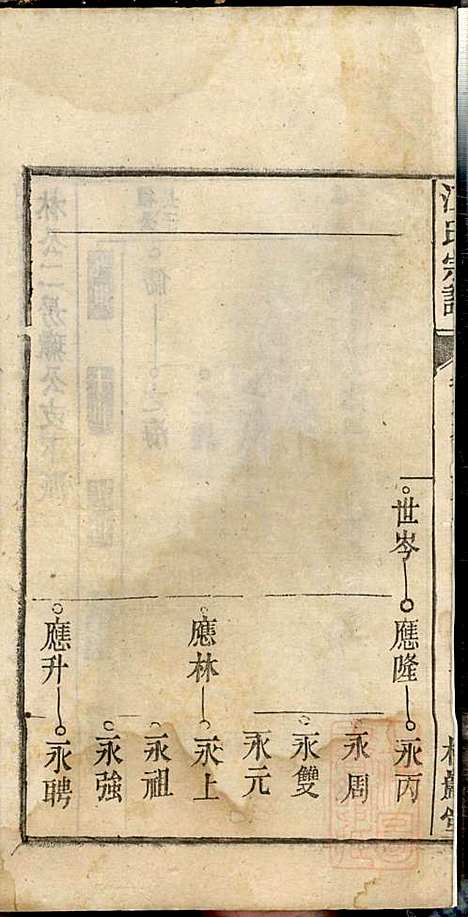 江氏宗譜
世岑
應隆
永丙
永周
永雙
永元
應林
永上
永祖
永強
應升
永聘